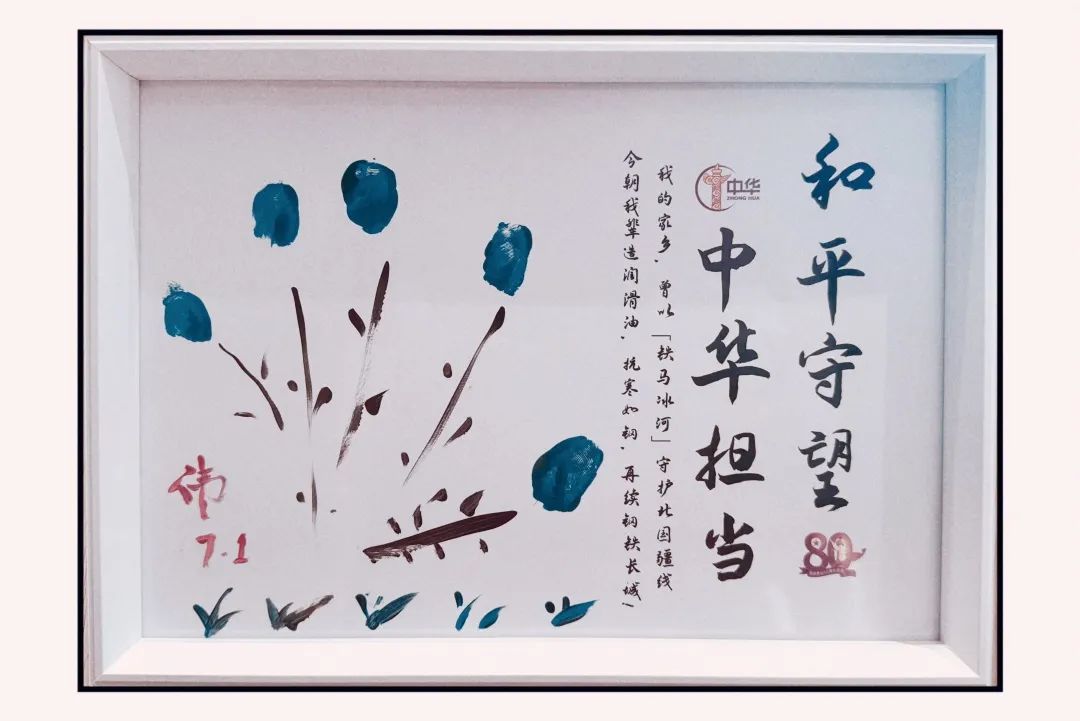 和平守望
80
中华担当
中华
ZHONG HUA
我的家乡，曾以「铁马冰河」守护北国疆线
今朝我辈造润滑油，抗寒如钢，再续钢铁长城！
伟
7.1